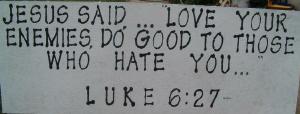 JESUS SAID, ... "LOVE YOUR
ENEMIES, DO GOOD TO THOSE
WHO HATE YOU..."
LUKE 6:27-